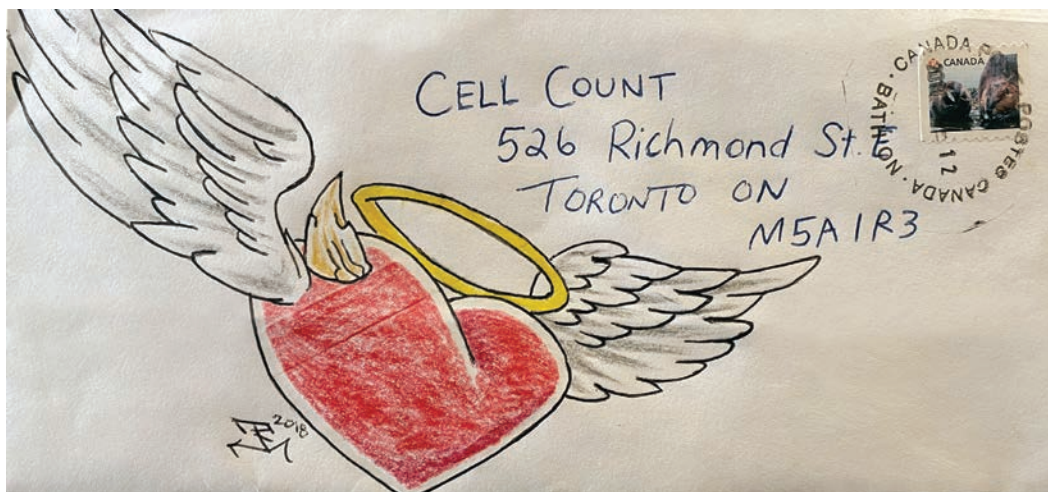 CELL COUNT
526 Richmond St. E
TORONTO ON
M5A 1R3
CANADA
POSTES CANADA
12
2018